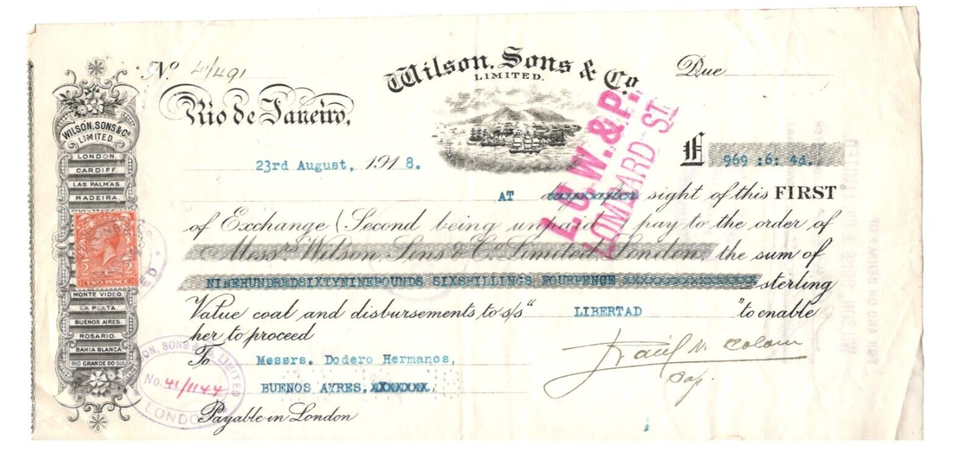 Nº 41/491
Wilson, Sons & Co.
LIMITED.
Due
Rio de Janeiro,
23rd August, 1918.
£ 969 :6: 4d.
AT days after sight of this FIRST
of Exchange (Second being unpaid) pay to the order of
Messrs Wilson Sons & Co Limited London, the sum of
NINEHUNDREDSIXTYNINEPOUNDS SIXSHILLINGS FOURPENCE XXXXXXXXXXXXXXXXX sterling
Value coal and disbursements to s/s "LIBERTAD" to enable
her to proceed
To Messrs. Dodero Hermanos,
BUENOS AYRES, XXXXXXX
Payable in London
L.C.W.&P.
LOMBARD ST
WILSON, SONS & Co.
LIMITED.
LONDON.
CARDIFF.
LAS PALMAS.
MADEIRA.
2 2
TWO PENCE
MONTE VIDEO.
LA PLATA.
BUENOS AIRES.
ROSARIO.
BAHIA BLANCA.
RIO GRANDE DO SUL
SONS LIMITED
No. 41/1144
LONDON